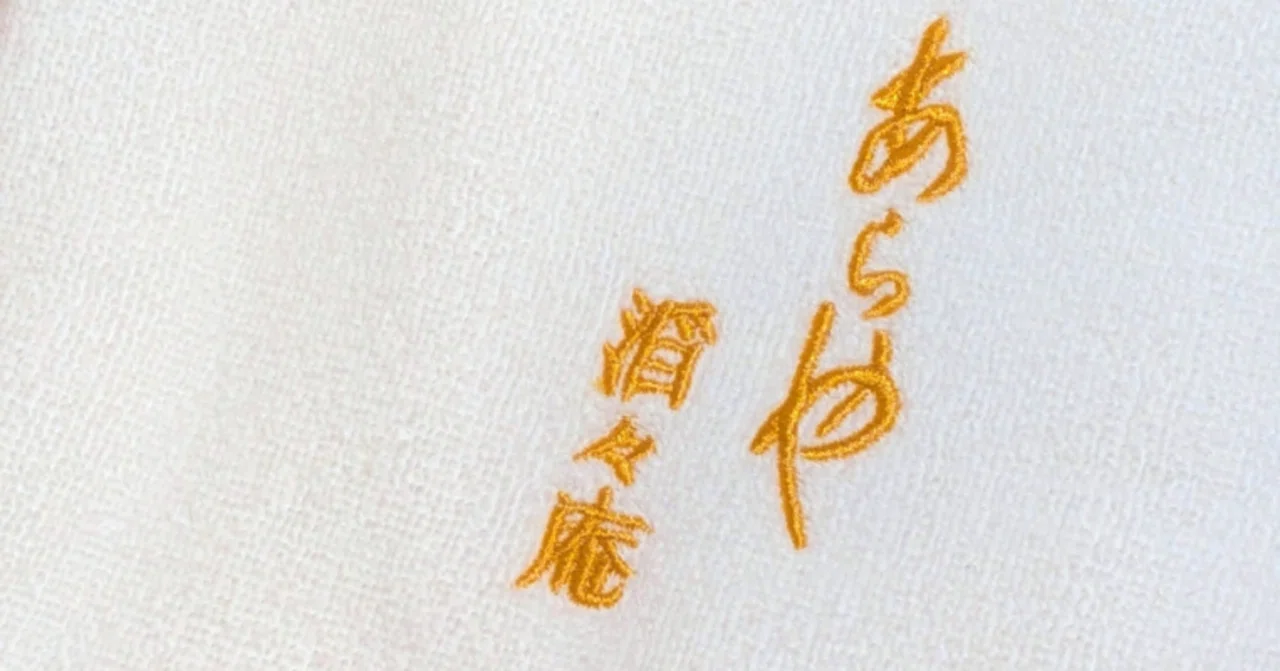 あらや
滔々庵